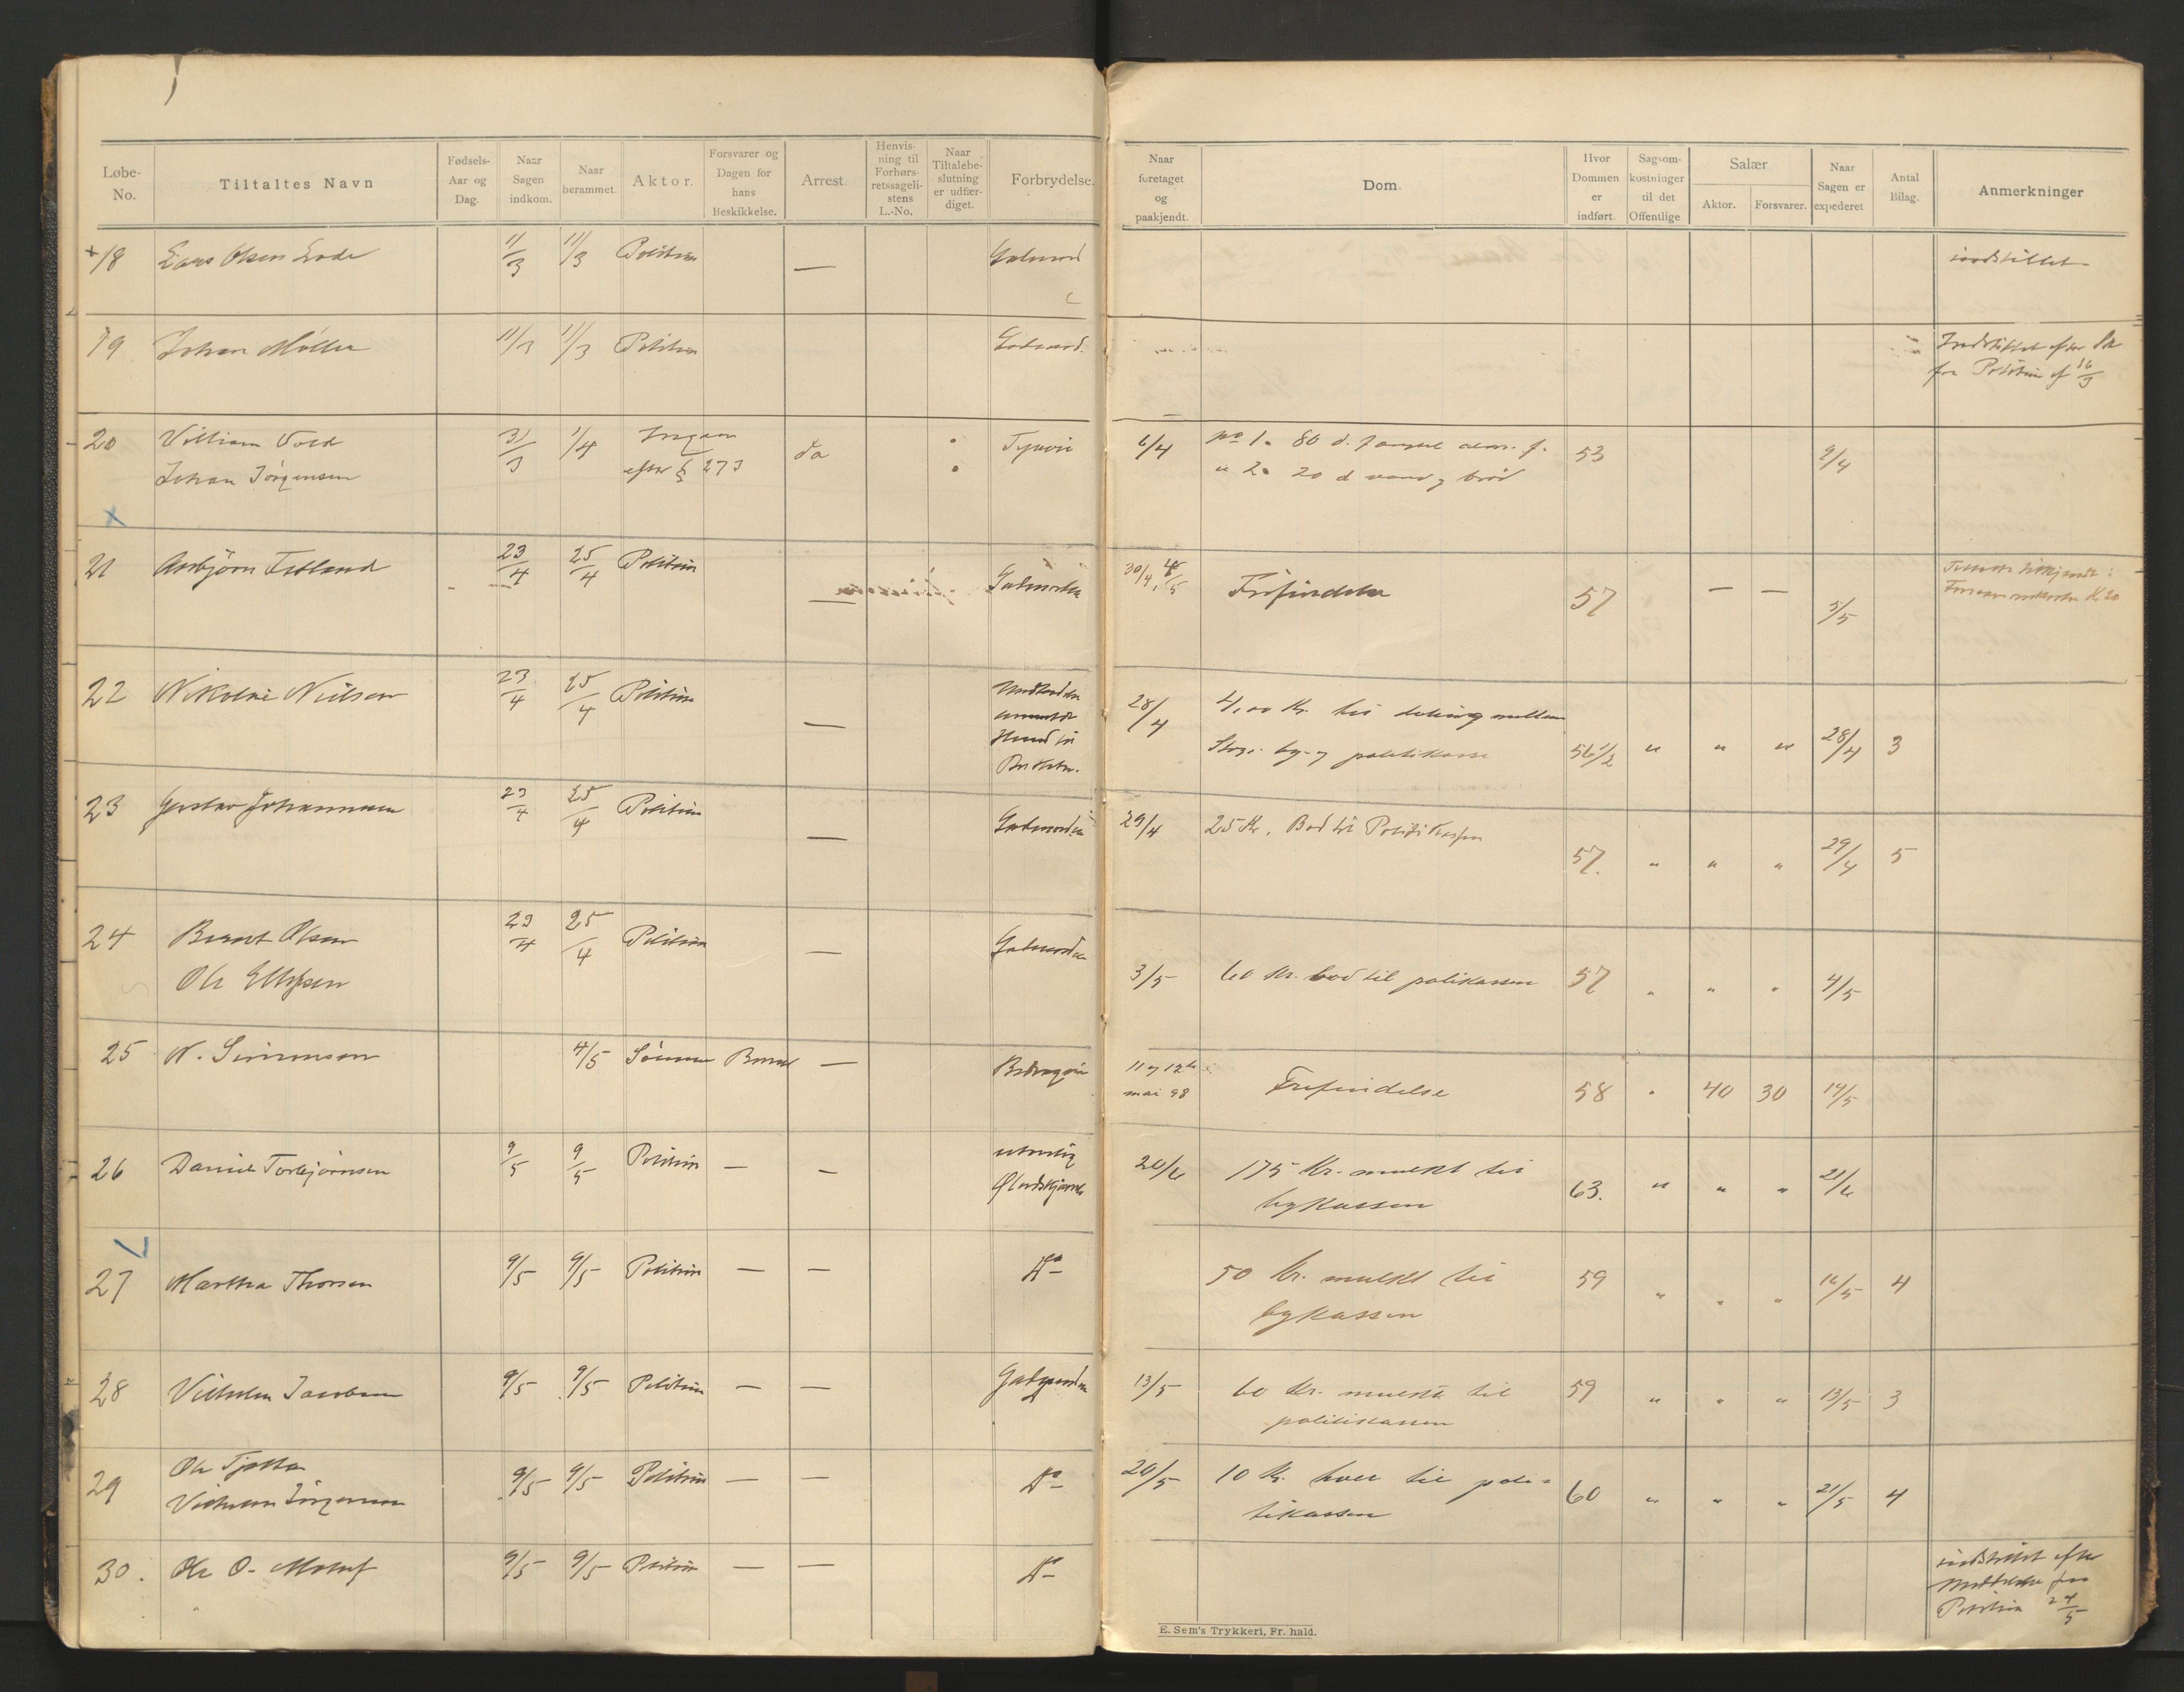 Løbe-No.
Tiltaltes Navn
Fødsels-Aar og Dag.
Naar Sagen indkom.
Naar berammet.
Aktor.
Forsvarer og Dagen for hans Beskikkelse.
Arrest.
Henvisning til Forhørsretssagelistens L.-No.
Naar Tiltalebeslutning er udfærdiget.
Forbrydelse.
Naar foretaget og paakjendt.
Dom.
Hvor Dommen er indført.
Sagsomkostninger til det Offentlige
Salær
Aktor.
Forsvarer.
Naar Sagen er expederet
Antal Bilag.
Anmerkninger
18 Lars Olsen 11/3 11/3 Politien — Gadeuord indstillet
19 Johan Möller 11/3 11/3 Politien Gadeuord. Indstillet efter
fra Politiet af 16/3
20 William Vold 31/3 1/4 ja Tyveri 6/4 no 1. 80 d. f. 53 9/4
Johan Jörgensen efter § 273 " 2. 20 d vand og brød
21 Asbjörn 23/4 25/4 Politien — Gadeuorden 30/4, 4/5 Frifindelse 57 — — 5/5
22 Nikolai Nielsen 23/4 25/4 Politien — 28/4 4,00 Kr. til deling mellem
Hund
by- og politikasse 56 1/2 " " " 28/4 3
23 Gustav Johannesen 23/4 25/4 Politien — Gadeuorden 29/4 25 Kr. Bod til Politikassen 57. " " " 29/4 5
24 Berent Olsen 23/4 25/4 Politien — Gadeuorden
Ole 3/5 60 Kr. bod til polikassen 57 " " " 4/5
25 N. Simonsen 4/5 — Bedrageri 11 og 12te mai 98 Frifindelse 58 " 40 30 14/5
26 Daniel Torbjörnsen 9/5 9/5 Politien — — ulovlig 20/6 175 Kr. mulkt til
bykassen 63. " " " 21/6
27 Martha Thorsen 9/5 9/5 Politien — — Do 50 kr. mulkt til
bykassen 59 " " " 16/5 4
28 Vilhelm Jacobsen 9/5 9/5 Politien — — Gadeuorden 13/5 60 Kr. mulkt til
politikassen 59 " " " 13/5 3
29 Ole Tjøtta 9/5 9/5 Politien — — Do 20/5 10 Kr. hver til poli-
Vilhelm Jörgensen tikassen 60 " " " 21/5 4
30. Ole O. 9/5 9/5 Politien — — Do indstillet efter
Meddelelse fra
Politiet 24/5
E. Sem's Trykkeri, Fr. hald.